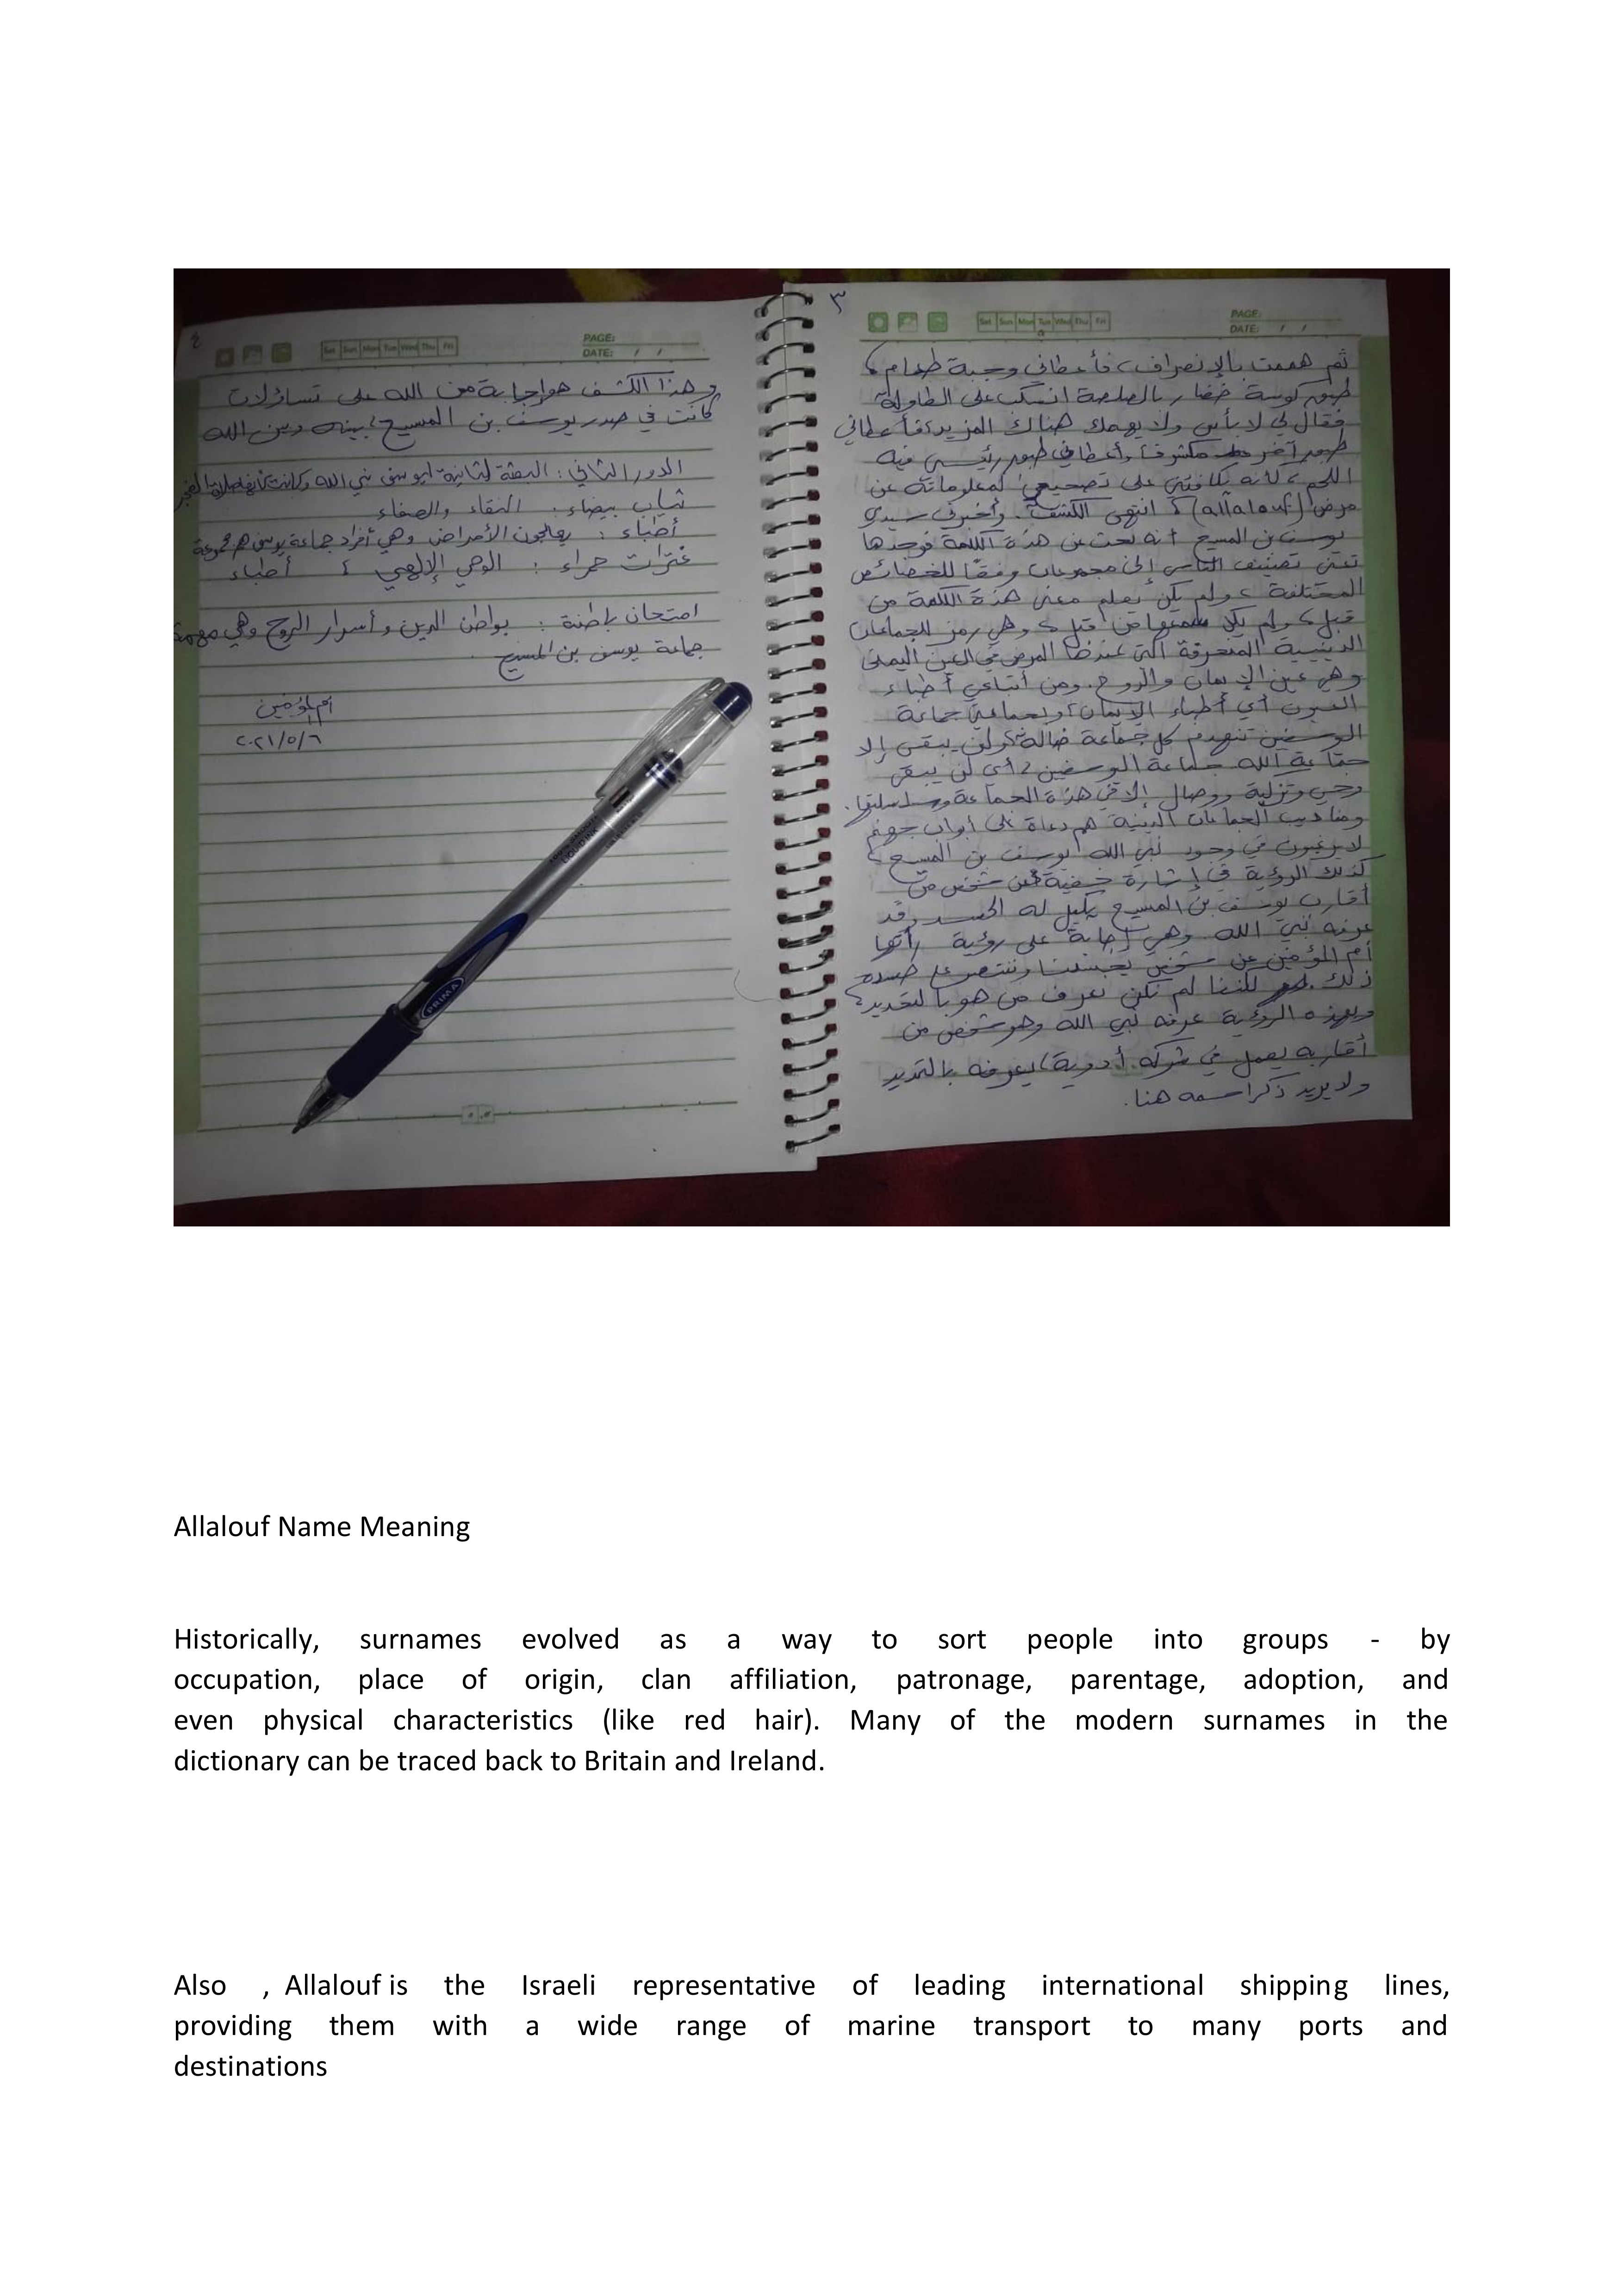 ٣
PAGE:
DATE: / /
Sat Sun Mon Tue Wed Thu Fri
ثم هممت بالإنصراف، فأعطاني وجبة طعام،
كوسة خضار بالصلصة انسكب على الطاولة
فقال لي لا بأس ولا يهمك هناك المزيد، فأعطاني
آخر مكشوف وأعطاني رئيسي فيه
اللحم، كأنه يكافئني على تصحيحي لمعلوماته عن
مرض (allalouf)، انتهى الكشف. وأخبرني سيدي
يوسف بن المسيح أنه بحث عن هذه الكلمة فوجدها
تعني تصنيف الناس إلى مجموعات وفقًا للخصائص
المختلفة، ولم يكن يعلم معنى هذه الكلمة من
قبل، ولم يكن من قبل، وهي رمز للجماعات
الدينية المنحرفة التي عندها المرض في العين اليمنى
وهي عين الإيمان والروح. ومن أتباعي أطباء
العيون أي أطباء الإيمان، وبجماعتي جماعة
اليوسفيين تنهدم كل جماعة ضالة ولن يبقى إلا
جماعة الله جماعة اليوسفيين، أي لن يبقى
وحي وتزكية ووصال إلا في هذه الجماعة
ومناديب الجماعات الدينية هم دعاة على أبواب جهنم
لا يرغبون في وجود نبي الله يوسف بن المسيح،
كذلك الرؤية في إشارة خفية عن شخص من
أقارب يوسف بن المسيح يكيل له الحسد وقد
عرفه نبي الله. وهي إجابة على رؤية رأتها
أم المؤمنين عن شخص يحسدنا وننتصر على حسده
ذلك. لكننا لم نكن نعرف من هو بالتحديد،
وبهذه الرؤية عرفه نبي الله وهو شخص من
أقاربه يعمل في شركة أدوية، يعرفه بالتحديد
ولا يريد ذكر اسمه هنا.
٤
PAGE:
DATE: / /
Sat Sun Mon Tue Wed Thu Fri
وهذا الكشف هو إجابة من الله على تساؤلات
كانت في صدر يوسف بن المسيح، بينه وبين الله
الدور الثاني: البعثة الثانية ليوسف نبي الله وكانت
ثياب بيضاء: النقاء والصفاء
أطباء: يعالجون الأمراض وهي أفراد جماعة يوسف هم مجموعة
غترات حمراء: الوحي الإلهي، أطباء
امتحان باطنة: بواطن الدين وأسرار الروح وهي مهمة
جماعة يوسف بن المسيح.
أم المؤمنين
٢٠٢١/٥/٦
PRIMA
Allalouf Name Meaning
Historically, surnames evolved as a way to sort people into groups - by
occupation, place of origin, clan affiliation, patronage, parentage, adoption, and
even physical characteristics (like red hair). Many of the modern surnames in the
dictionary can be traced back to Britain and Ireland.
Also , Allalouf is the Israeli representative of leading international shipping lines,
providing them with a wide range of marine transport to many ports and
destinations